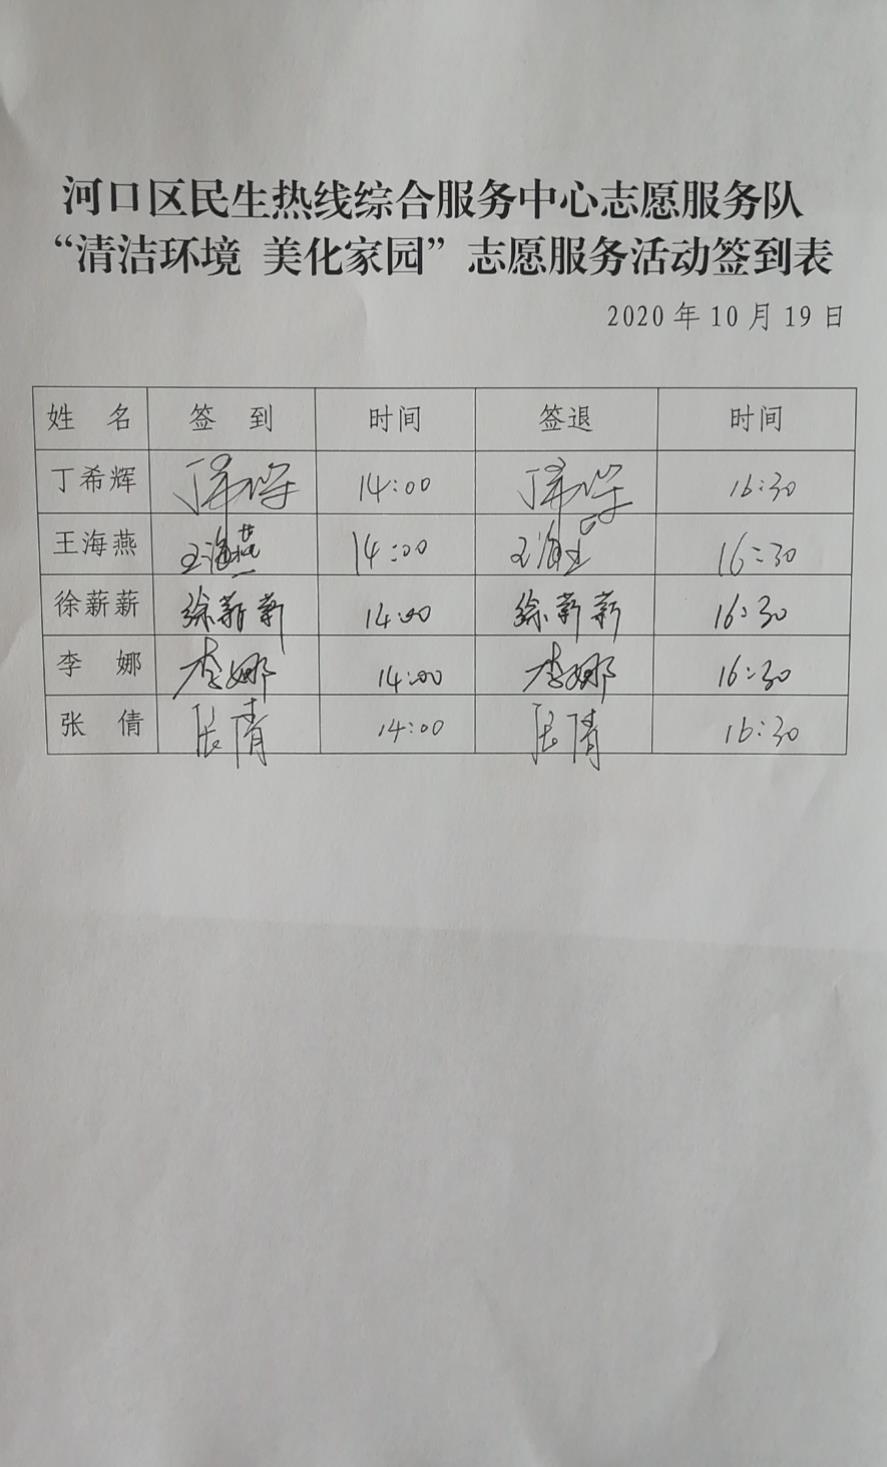 河口区民生热线综合服务中心志愿服务队
“清洁环境 美化家园”志愿服务活动签到表
2020 年 10 月 19 日
姓 名 签 到 时间 签退 时间
丁希辉 丁希辉 14:00 丁希辉 16:30
王海燕 王海燕 14:00 王海燕 16:30
徐薪薪 徐薪薪 14:00 徐薪薪 16:30
李 娜 李娜 14:00 李娜 16:30
张 倩 张倩 14:00 张倩 16:30